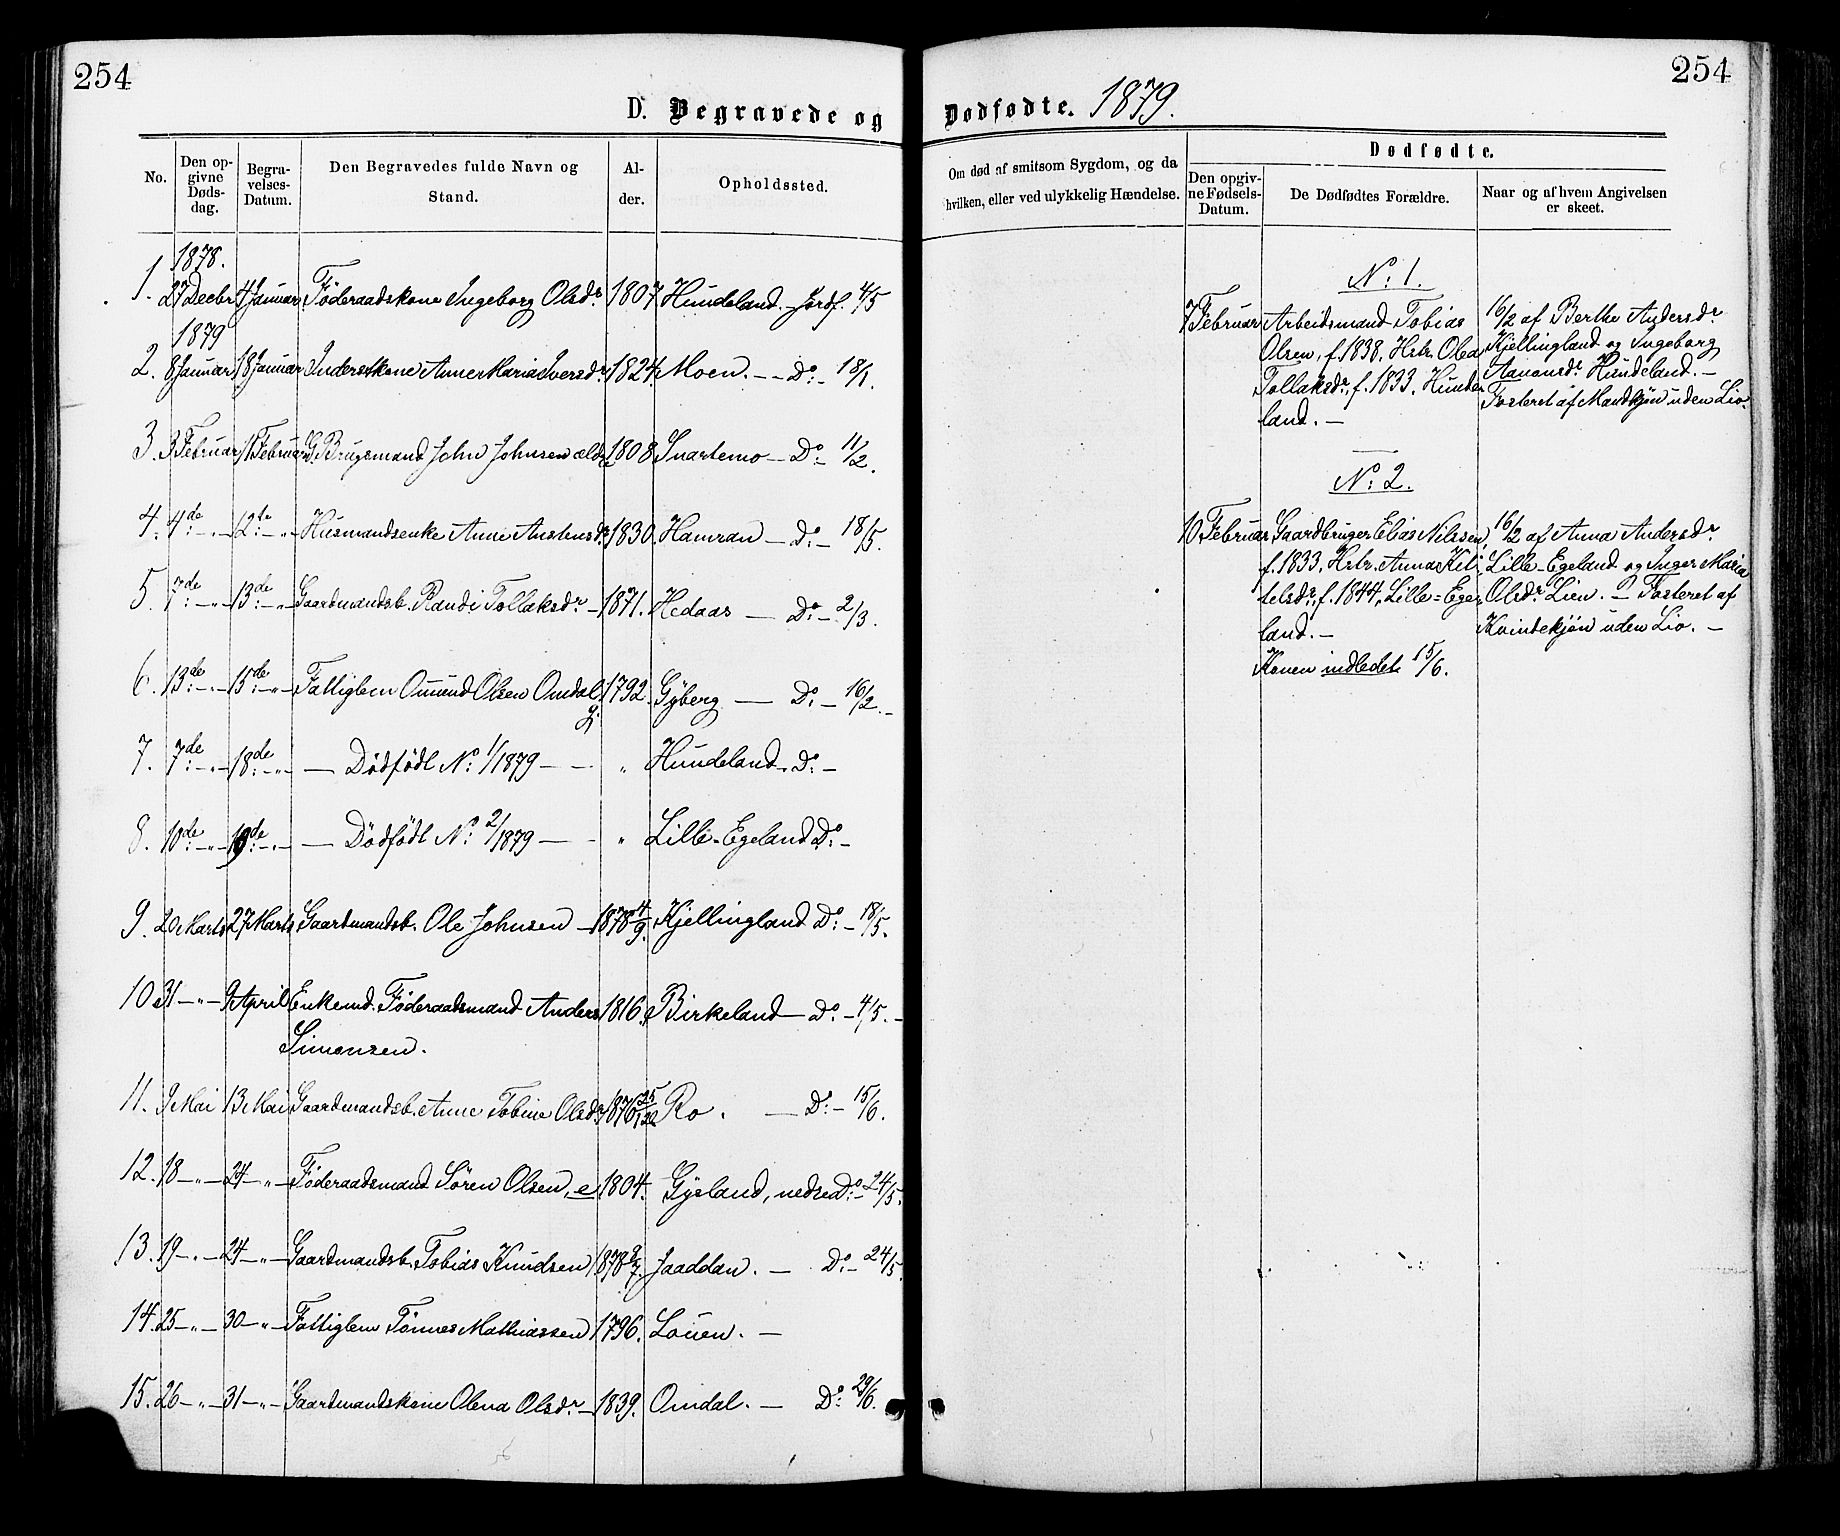 254
254
D. Begravede og Dødfødte. 1879.
No.
Den opgivne Dødsdag.
Begravelses-Datum.
Den Begravedes fulde Navn og Stand.
Alder.
Opholdssted.
Om død af smitsom Sygdom, og da hvilken, eller ved ulykkelig Hændelse.
Dødfødte.
Den opgivne Fødsels-Datum.
De Dødfødtes Forældre.
Naar og af hvem Angivelsen er skeet.
1878.
1. 27 Decbr 4 Januar Föderaadskone Ingeborg Olsdr 1807 Hundeland. – Jordf. 4/5
1879
2. 8 Januar 18 Januar Inderstkone Anne Maria Iversdr 1824 Moen. – – Do – 18/1.
3. 3 Februar 11 Februar G. Brugsmand John Johnsen ældr 1808 Svartemo – Do – 11/2.
4. 4de – „ – 12te – „ – Husmandsenke Anne Austensdr 1830. Hamran – Do – 18/5.
5. 7de – „ – 13de – „ – Gaardmandsb. Randi Tollaksdr – 1871. Hedaas – Do – 2/3.
6. 13de – „ – 15de – „ – Fattiglem Omund Olsen Omdal 1792. Gyberg – Do – 16/2. –
7. 7de – „ – 18de – „ – – Dödfödt No 1/1879 – – „ Hundeland – Do –
8. 10de – „ – 19de – „ – – Dödfödt No 2/1879 – – „ Lille-Egeland Do –
9. 20 Marts 27 Marts Gaardmandsb. Ole Johnsen – 1878 4/9. Kjellingland Do – 18/5.
10 31 – „ – 9 April Enkemd. Föderaadsmand Anders 1816. Birkeland – Do – 4/5. –
Simonsen.
11. 9 Mai 13 Mai Gaardmandsb. Anne Tobine Olsdr 1876 25/12 Ro. – Do – 15/6.
12. 18 – „ – 24 – „ – Föderaadsmand Sören Olsen, e 1804. Gyland, nedre Do – 24/5.
13. 19 – „ – 24 – „ – Gaardmandsb. Tobias Knudsen 1878 9/7. Jaaddan. – Do – 24/5.
14. 25 – „ – 30 – „ – Fattiglem Tönnes Mathiassen 1796. Louen. –
15. 26 – „ – 31 – „ – Gaardmandskone Olena Olsdr – 1839. Omdal. – Do 29/6.
No: 1.
7 Februar Arbeidsmand Tobias
Olsen, f. 1838. Hstr. Olea
Tollaksdr, f. 1833. Hunde-
land. –
16/2 af Berthe Andersdr
Kjellingland og Ingeborg
Aanonsdr Hundeland. –
Fosteret af Mandkjön uden Liv.
No: 2.
10 Februar Gaardbruger Elias Nilssen
f. 1833. Hstr. Anna Kit-
telsdr, f. 1844, Lille-Ege-
land. –
Konen indledet 15/6.
16/2 af Anna Andersdr
Lille-Egeland og Inger Maria
Olsdr Lien. – Fosteret af
Kvindekjön uden Liv. –